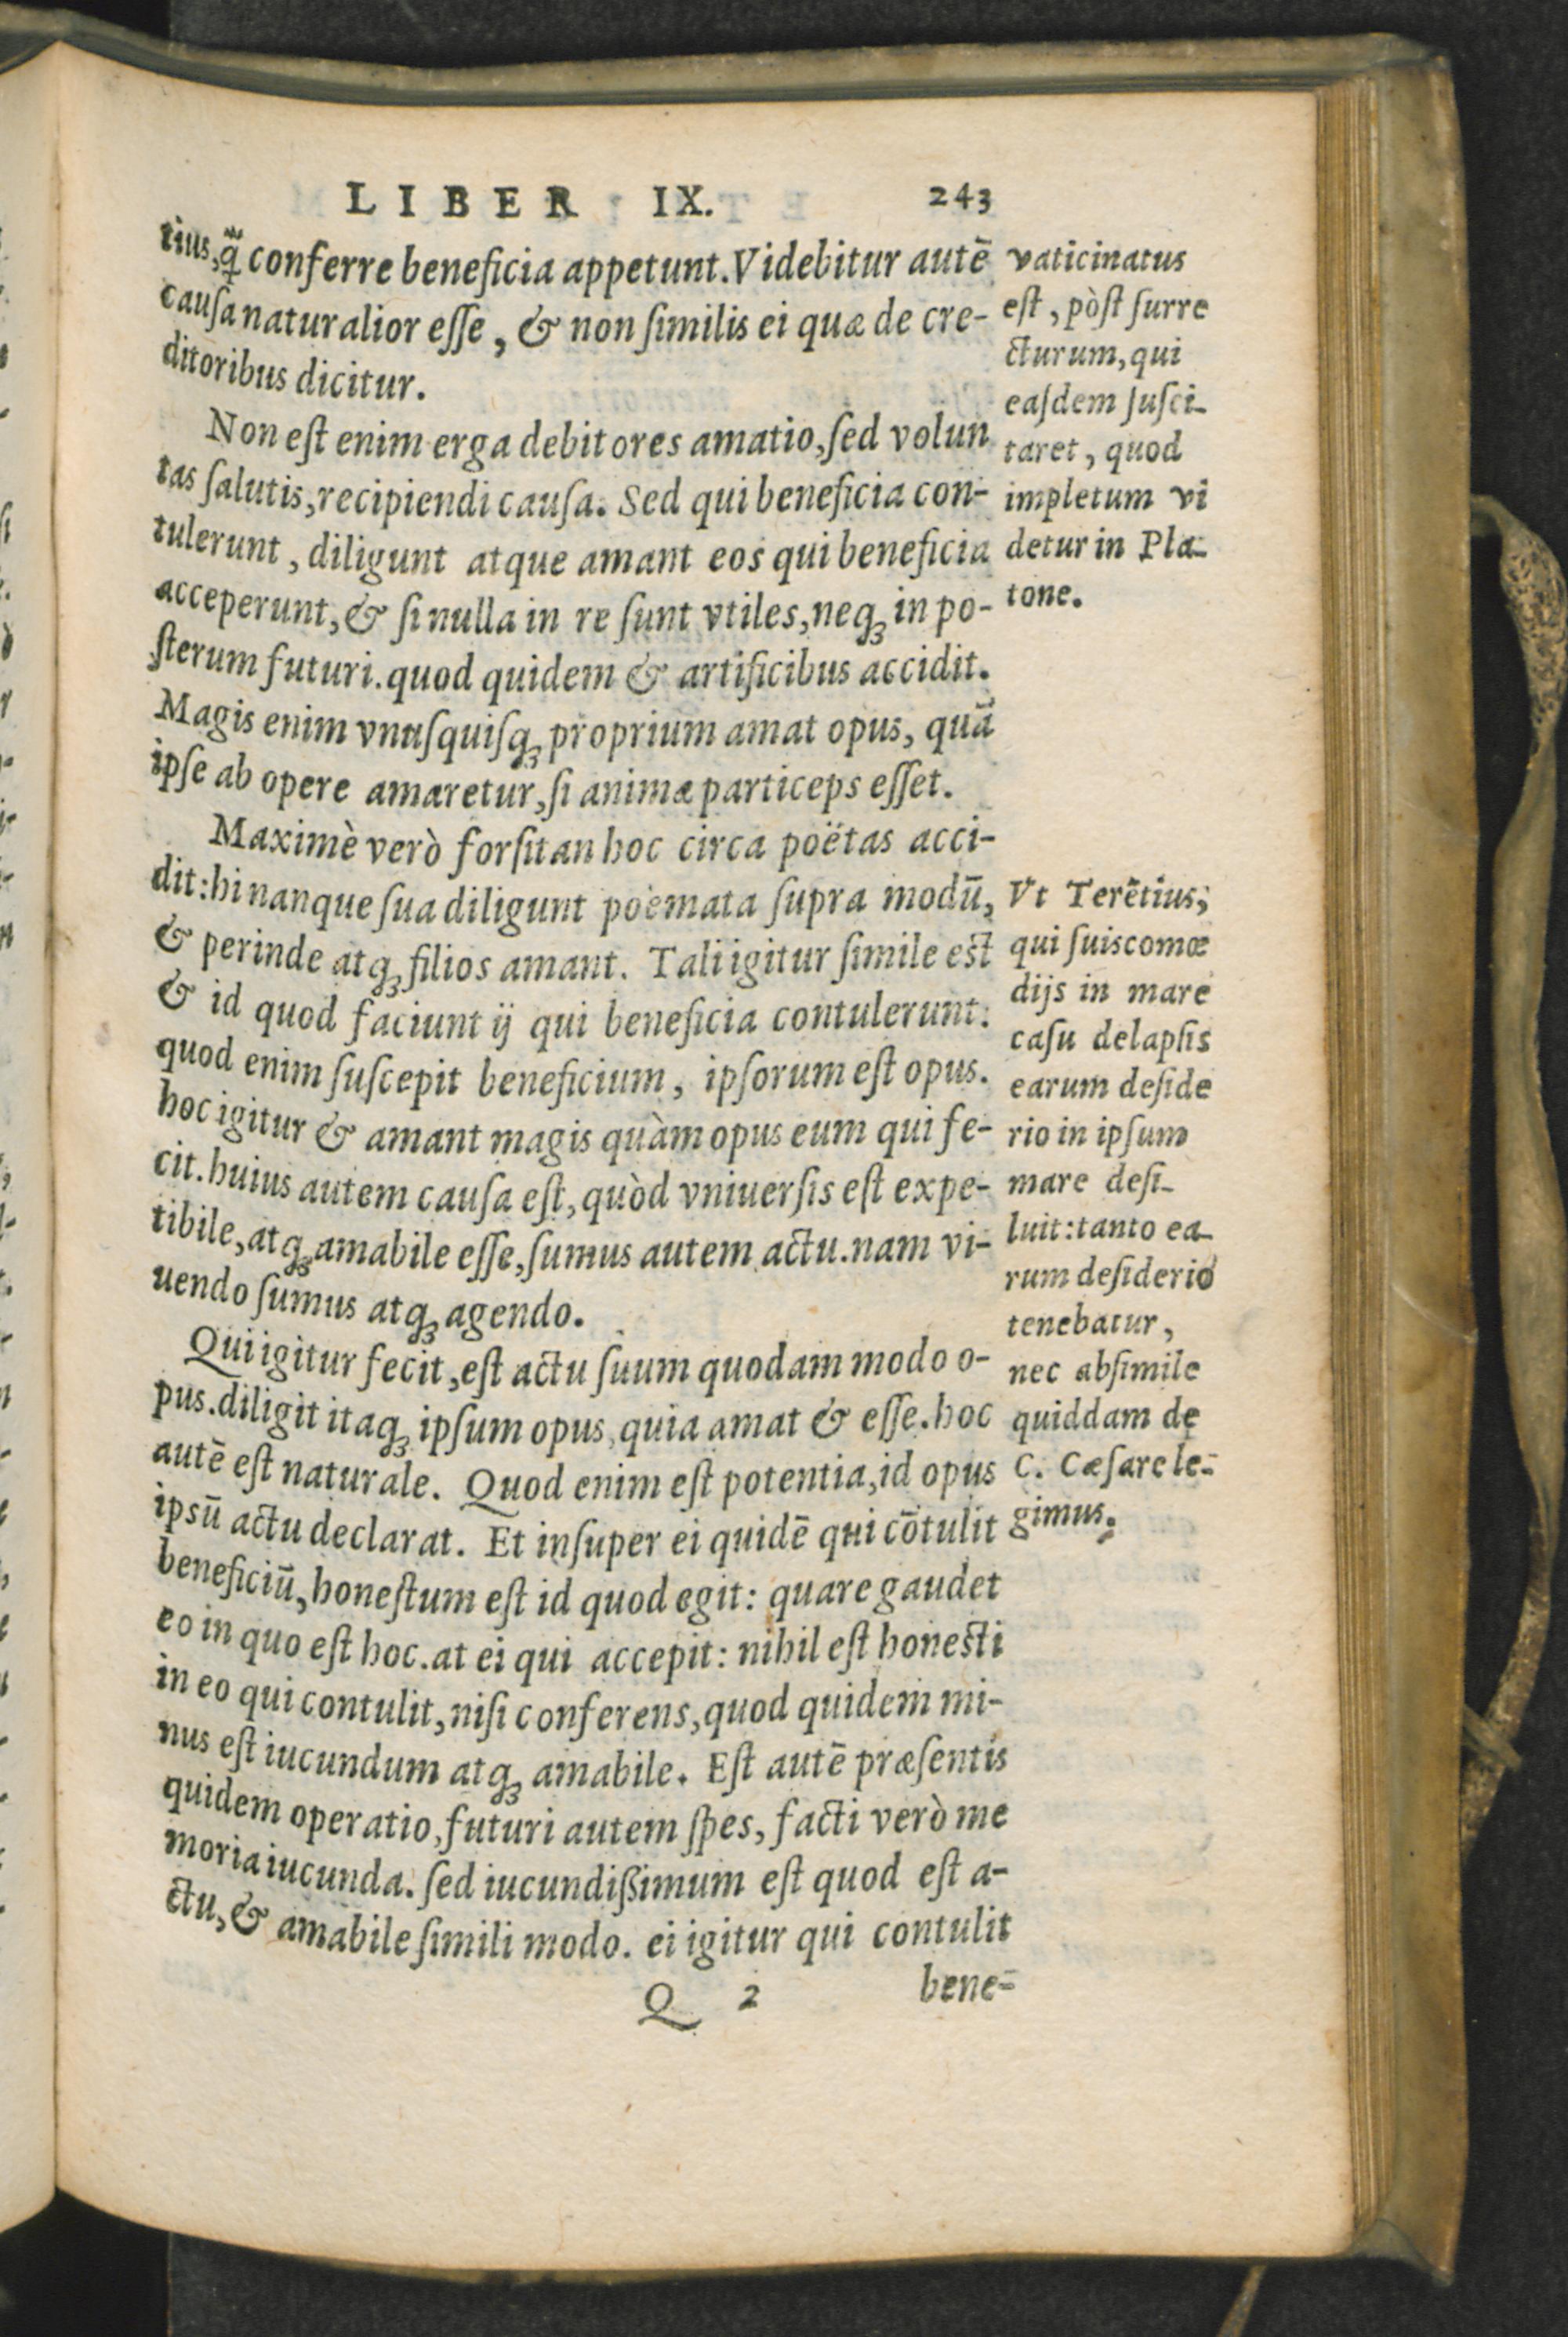 LIBER IX. 243
tius, q̃ conferre beneficia appetunt. Videbitur autẽ
causa naturalior esse, & non similis ei quæ de cre-
ditoribus dicitur.
Non est enim erga debitores amatio, sed volun
tas salutis, recipiendi causa. Sed qui beneficia con-
tulerunt, diligunt atque amant eos qui beneficia
acceperunt, & si nulla in re sunt vtiles, neq; in po-
sterum futuri. quod quidem & artificibus accidit.
Magis enim vnusquisq; proprium amat opus, quã
ipse ab opere amaretur, si animæ particeps esset.
Maximè verò forsitan hoc circa poëtas acci-
dit: hi nanque sua diligunt poëmata supra modũ,
& perinde atq; filios amant. Tali igitur simile est
& id quod faciunt ij qui beneficia contulerunt:
quod enim suscepit beneficium, ipsorum est opus.
hoc igitur & amant magis quàm opus eum qui fe-
cit. huius autem causa est, quòd vniuersis est expe-
tibile, atq; amabile esse, sumus autem actu. nam vi-
uendo sumus atq; agendo.
Qui igitur fecit, est actu suum quodam modo o-
pus. diligit itaq; ipsum opus, quia amat & esse. hoc
autẽ est naturale. Quod enim est potentia, id opus
ipsũ actu declarat. Et insuper ei quidẽ qui cõtulit
beneficiũ, honestum est id quod egit: quare gaudet
eo in quo est hoc. at ei qui accepit: nihil est honesti
in eo qui contulit, nisi conferens, quod quidem mi-
nus est iucundum atq; amabile. Est autẽ præsentis
quidem operatio, futuri autem spes, facti verò me
moria iucunda. sed iucundißimum est quod est a-
ctu, & amabile simili modo. ei igitur qui contulit
Q 2 bene-
vaticinatus
est, pòst surre
cturum, qui
easdem susci-
taret, quod
impletum vi
detur in Pla-
tone.
Vt Terẽtius,
qui suis comœ
dijs in mare
casu delapsis
earum deside
rio in ipsum
mare desi-
luit: tanto ea-
rum desiderio
tenebatur,
nec absimile
quiddam de
C. Cæsare le-
gimus.